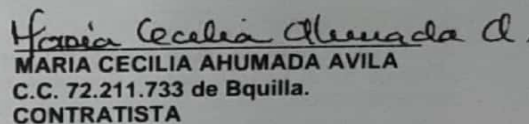 Maria Cecilia Ahumada A.
MARIA CECILIA AHUMADA AVILA
C.C. 72.211.733 de Bquilla.
CONTRATISTA